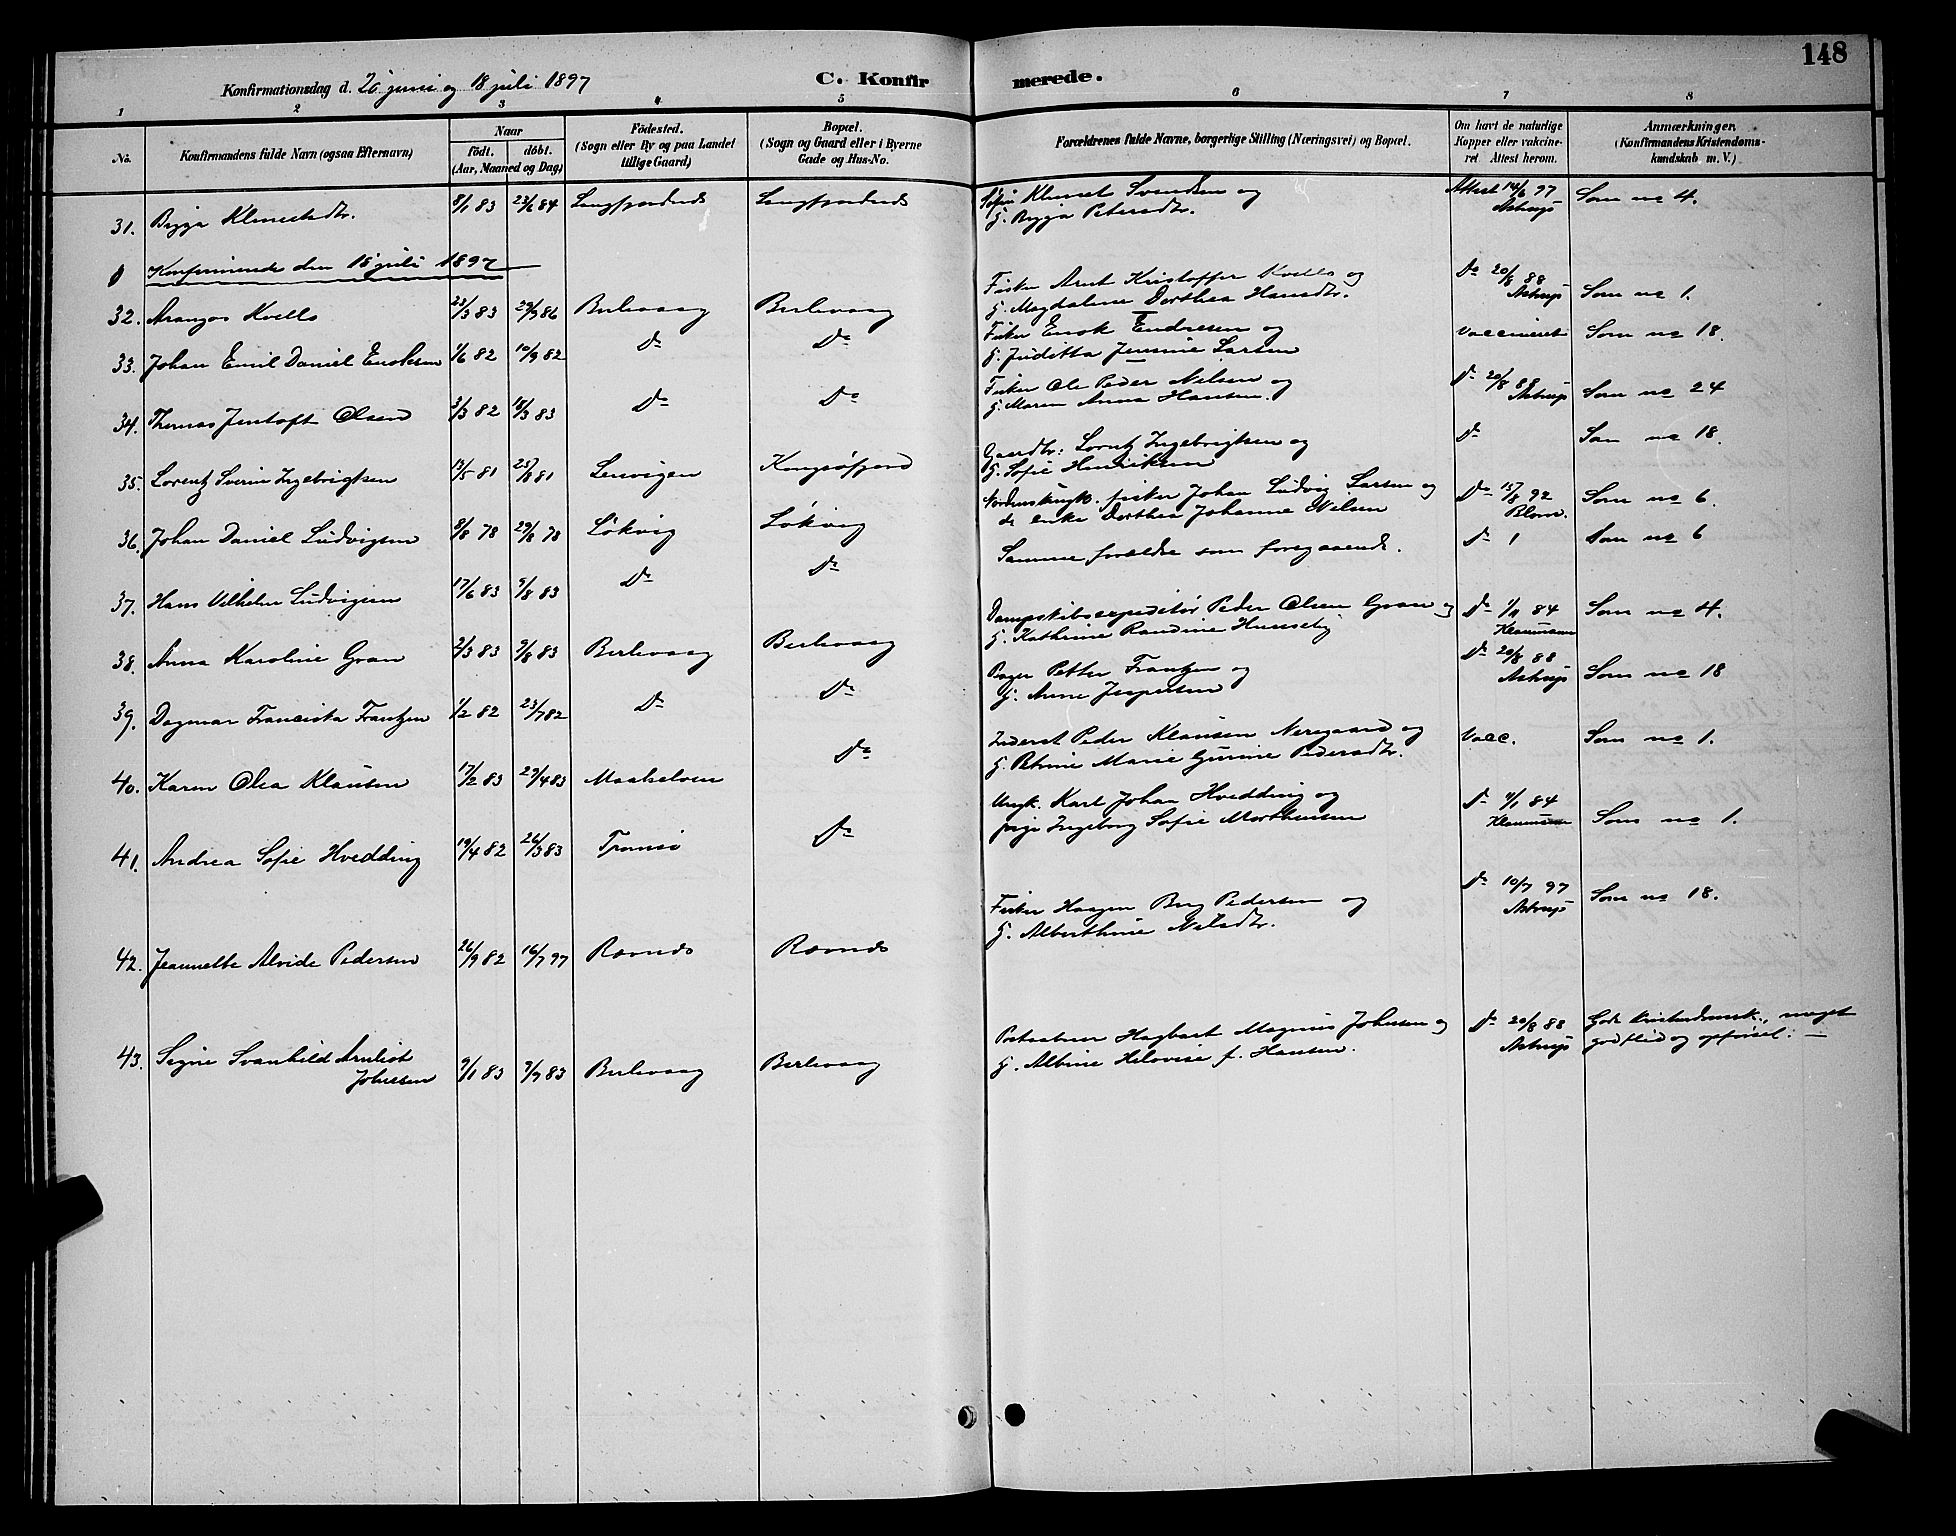 148
Konfirmationsdag d. 26 juni og 18 juli 1897 C. Konfirmerede.
1 2 3 4 5 6 7 8
No. Konfirmandens fulde Navn (ogsaa Efternavn) Naar födt. döbt. (Aar, Maaned og Dag) Födested. (Sogn eller By og paa Landet tillige Gaard) Bopæl. (Sogn og Gaard eller i Byerne Gade og Hus-No. Forældrenes fulde Navne, borgerlige Stilling (Næringsvei) og Bopæl. Om havt de naturlige Kopper eller vakcineret. Attest herom. Anmærkninger. (Konfirmandens Kristendomskundskab m. V.)
31. Bigga Klemetsdtr. 8/1 83 23/6 84 Langfjordnes Langfjordnes Klemet Svendsen og Attest 14/6 97 Som no 4.
G. Bigga Petersdtr. Astrup
Konfirmerede den 18 juli 1897
32. Arangos Kvello 23/3 83 29/3 86 Berlevaag Berlevaag Fisker Arnt Kristoffer Kvello og Do 20/8 88 Som no 1.
G. Magdalene Dorthea Hansdtr. Astrup
33. Johan Emil Daniel Enoksen 1/6 82 10/9 82 Do Do Fisker Enok Endresen og vaccineret Som no 18.
G. Juditta Jensine Larsen
34. Thomas Jentoft Olsen 3/3 82 18/3 83 Do Do Fisker Ole Peder Nilsen og Do 20/8 88 Som no 24
G. Maren Anna Hansen. Astrup
35. Lorentz Sverin Ingebrigtsen 13/5 81 25/8 81 Lervigen Kongsöfjord Gaardbr: Lorntz Ingebrigtsen og Do Som no 18.
G. Sofie Henriksen
36. Johan Daniel Ludvigsen 8/8 78 29/8 78 Lökvig Lökvig fisker Johan Ludvig Larsen og Do 15/8 92 Som no 6.
enke Dorthea Johanne Nilsen Blom.
37. Hans Vilhelm Ludvigsen 17/6 83 9/8 83 Do Do Samme forældre som foregaaende. Do 1 Som no 6
38. Anna Karoline Gran 2/3 83 9/8 83 Berlevaag Berlevaag Dampskibsexpeditör Peder Olsen Gran og Do 1/11 84 Som no 4.
G. Kathrine Randine Husseby Klaumann
39. Dagmar Franciska Frantzen 1/2 82 23/7 82 Do Do Bager Petter Frantzen og Do 20/8 88 Som no 18
G. Anne Jespersen Astrup
40. Karen Olea Klausen 17/2 83 29/4 83 Maalselven Do Inderst Peder Klausen Nergaard og Vacc. Som no 1.
G. Petrine Marie Gurine Pedersdtr.
41. Andrea Sofie Hvedding 19/4 82 26/3 83 Tromsö Do Ungk. Karl Johan Hvedding og Do 4/1 84 Som no 1.
pige Ingeborg Sofie Morthensen Klaumann
42. Jeannette Alvide Pedersen 26/9 82 16/7 97 Ravnes Ravnes Fisker Haagen Berg Pedersen og Do 10/7 97 Som no 18.
G. Alberthine Nilsdtr. Astrup
43. Signe Svanhild Arnliot Johnsen 9/1 83 7/7 83 Berlevaag Berlevaag Postaabner Hagbart Magnus Johnsen og Do 20/8 88 God Kristendomsk., meget
G. Albine Helovise f. Hansen. Astrup god flid og opförsel. —